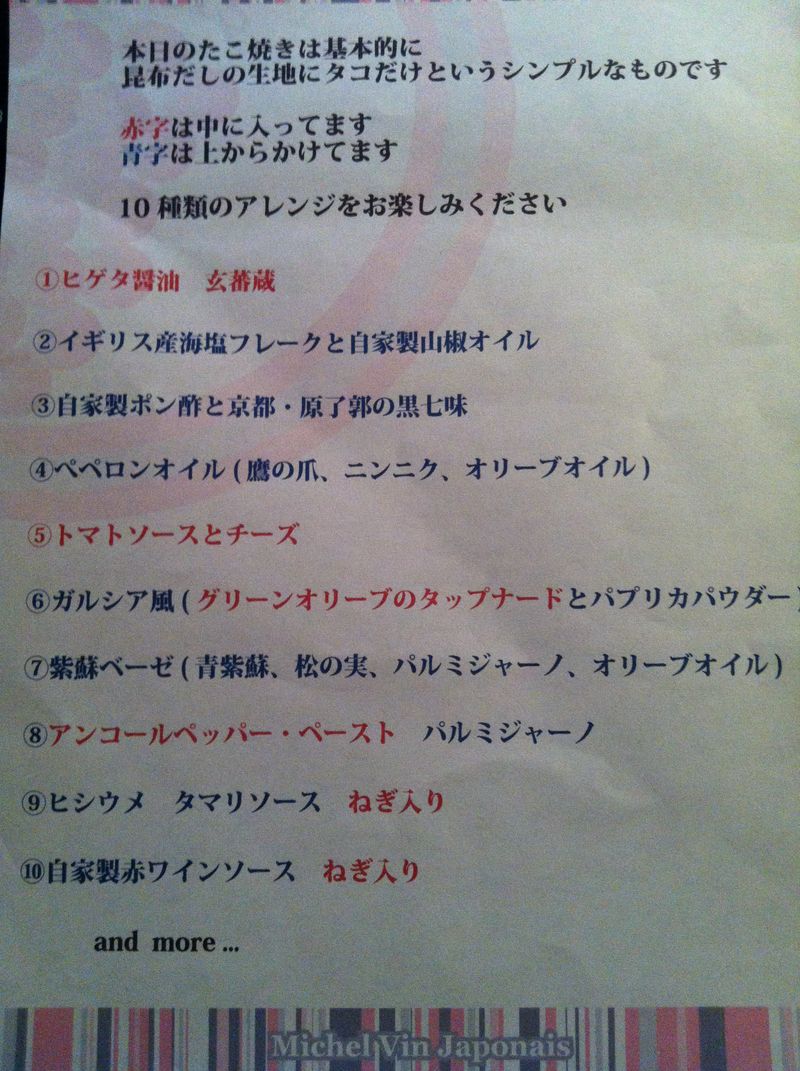 本日のたこ焼きは基本的に
昆布だしの生地にタコだけというシンプルなものです
赤字は中に入ってます
青字は上からかけてます
10 種類のアレンジをお楽しみください
①ヒゲタ醤油　玄蕃蔵
②イギリス産海塩フレークと自家製山椒オイル
③自家製ポン酢と京都・原了郭の黒七味
④ペペロンオイル ( 鷹の爪、ニンニク、オリーブオイル )
⑤トマトソースとチーズ
⑥ガルシア風 ( グリーンオリーブのタップナードとパプリカパウダー )
⑦紫蘇ベーゼ ( 青紫蘇、松の実、パルミジャーノ、オリーブオイル )
⑧アンコールペッパー・ペースト　パルミジャーノ
⑨ヒシウメ　タマリソース　ねぎ入り
⑩自家製赤ワインソース　ねぎ入り
and more ...
Michel Vin Japonais